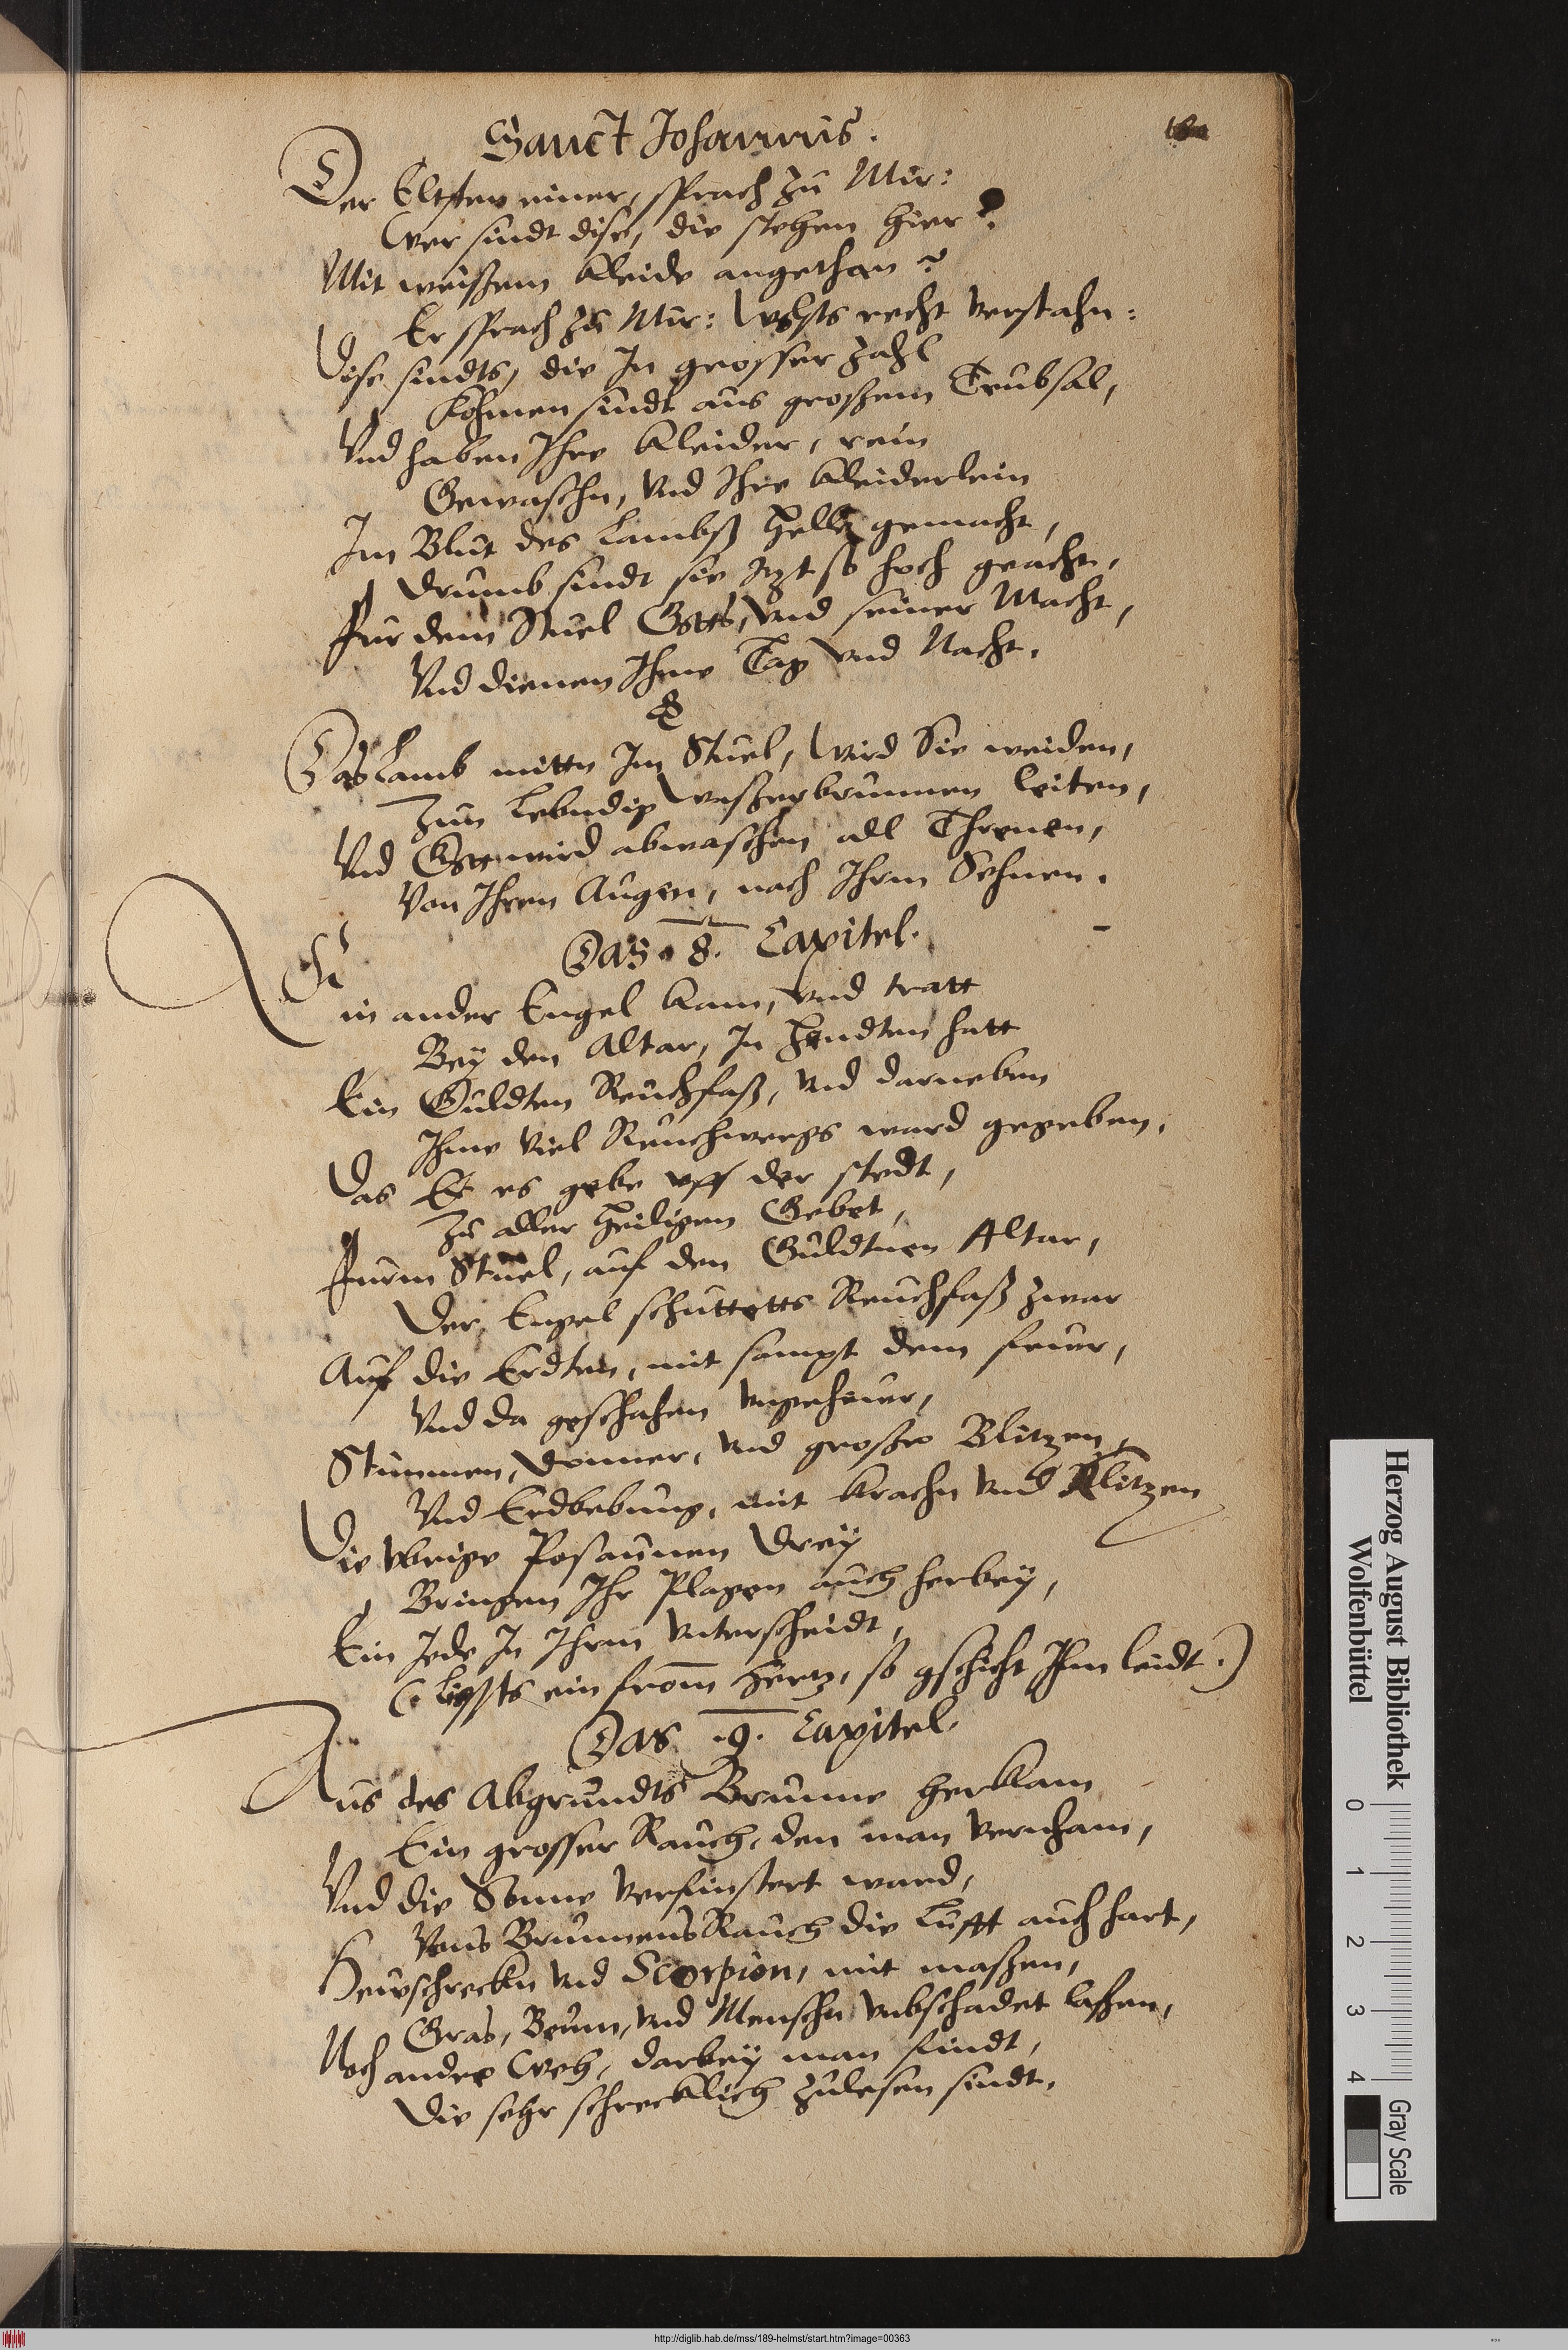 Sanct Johannis.
Der Eltsten einer, sprach zu Mir:
Wer sindt dise, die stehen hier?
Mit weißem Kleide angethan?
Er sprach zu Mir: recht verstahn:
Dise sindts, die In grosser zahl
Kohmen sindt aus großem Trubsal,
Vnd haben Ihre Kleider, rein
Gewaschn, Vnd Ihre Kleiderlein
Im Blut des Lambß Helle gemacht,
Drumb sindt sie itzt so hoch geacht,
Fur dem Stuel Gotts, Vnd seiner Macht,
Vnd dienen Ihme Tag vnd Nacht.
Das Lamb mittn Im Stuel, Wird Sie weiden,
Zun Lebndig Waßerbrunnen leiten,
Vnd Gott wird abwaschen all Threnen,
Von Ihren Augen, nach Ihrm Sehnen.
Das 8. Capitel.
Ein ander Engel kam, Vnd tratt
Bey den Altar, In Hendten hatt
Ein Guldten Reuchfaß, Vnd darneben
Ihme Viel Reuchwergs ward gegeben,
Das Er es gebe vff der stedt,
Zu aller Heiligen Gebet,
Furm Stuel, auf den Guldtnen Altar,
Der Engel schuttetts Reuchfaß zwar
Auf die Erdten, mit sampt dem feuer,
Vnd da geschahen Vngeheuer,
Stimmen, Donner, Vnd große Blitzen,
Vnd Erdbebung, mit krachn Vnd Klitzen
Die Vbrige Posaunen Drey
Bringen Ihr Plagen auch herbey,
Ein Jede In Ihrm Vnterscheidt,
(Liessts ein from Hertz, so gschicht Ihm leidt.)
Das .9. Capitel.
Aus des Abgrundts Brunne herkam
Ein grosser Rauch, den man Vernham,
Vnd die Sonne Verfinstert ward,
Vons Brunnens Rauch die Lufft auch hart,
Heuschreckn Vnd Scorpion, mit maßen,
Gras, Beum, Vnd Menschn Vnbschadet laßen,
Noch andre Weh, darbey man findt,
Die sehr schrecklich zulesen sindt.
Herzog August Bibliothek
Wolfenbüttel
0 1 2 3 4
Gray Scale
http://diglib.hab.de/mss/189-helmst/start.htm?image=00363